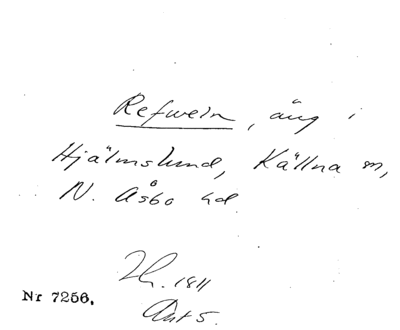 Refwein, äng i
Hjälmslund, Källna sn,
N. Åsbo hd.
Zh. 1811
Akt 5.
Nr 7256.